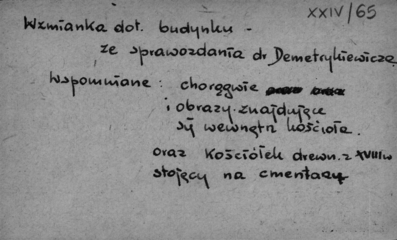 XXIV/65
Wzmianka dot. budynku -
ze sprawozdania dr Demetrykiewicza
Wspomniane : chorągwie
i obrazy znajdujące
się wewnątrz kościoła.
oraz Kościółek drewn. z XVIII w
stojący na cmentarzu